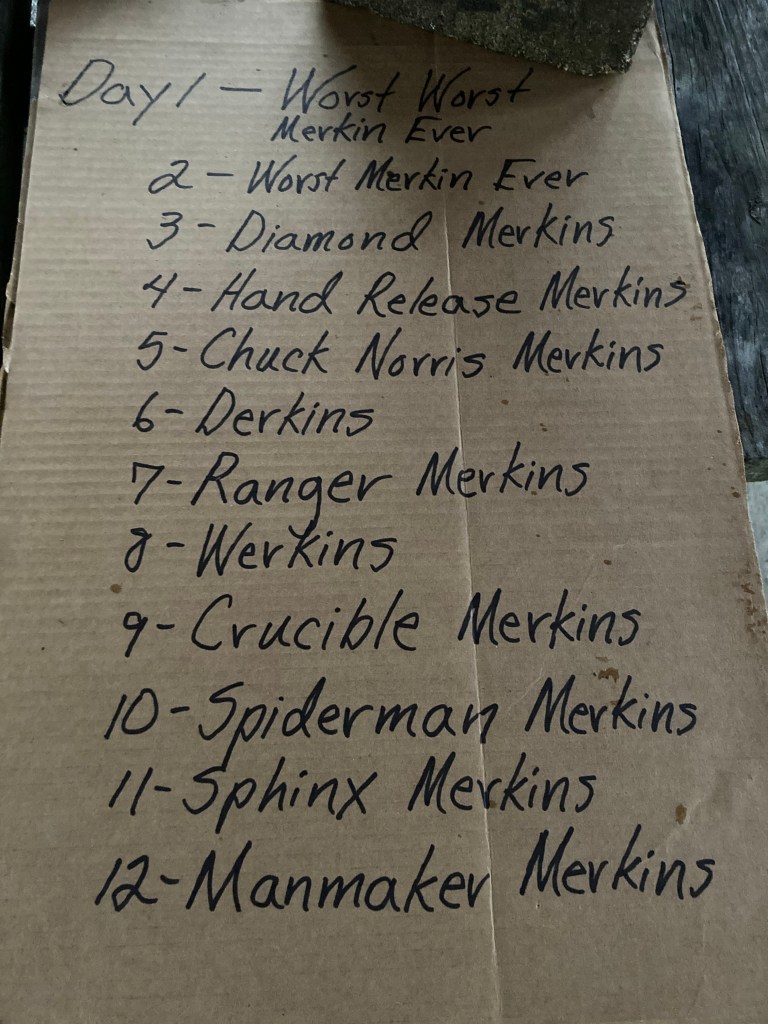 Day 1 - Worst Worst
Merkin Ever
2 - Worst Merkin Ever
3 - Diamond Merkins
4 - Hand Release Merkins
5 - Chuck Norris Merkins
6 - Derkins
7 - Ranger Merkins
8 - Werkins
9 - Crucible Merkins
10 - Spiderman Merkins
11 - Sphinx Merkins
12 - Manmaker Merkins